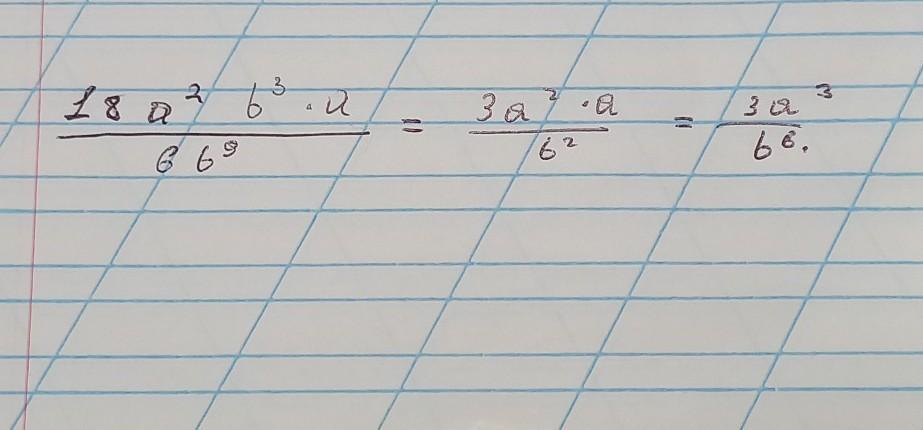 18 a² b³ · a / 6 b⁹ = 3a² · a / b² = 3a³ / b⁶.